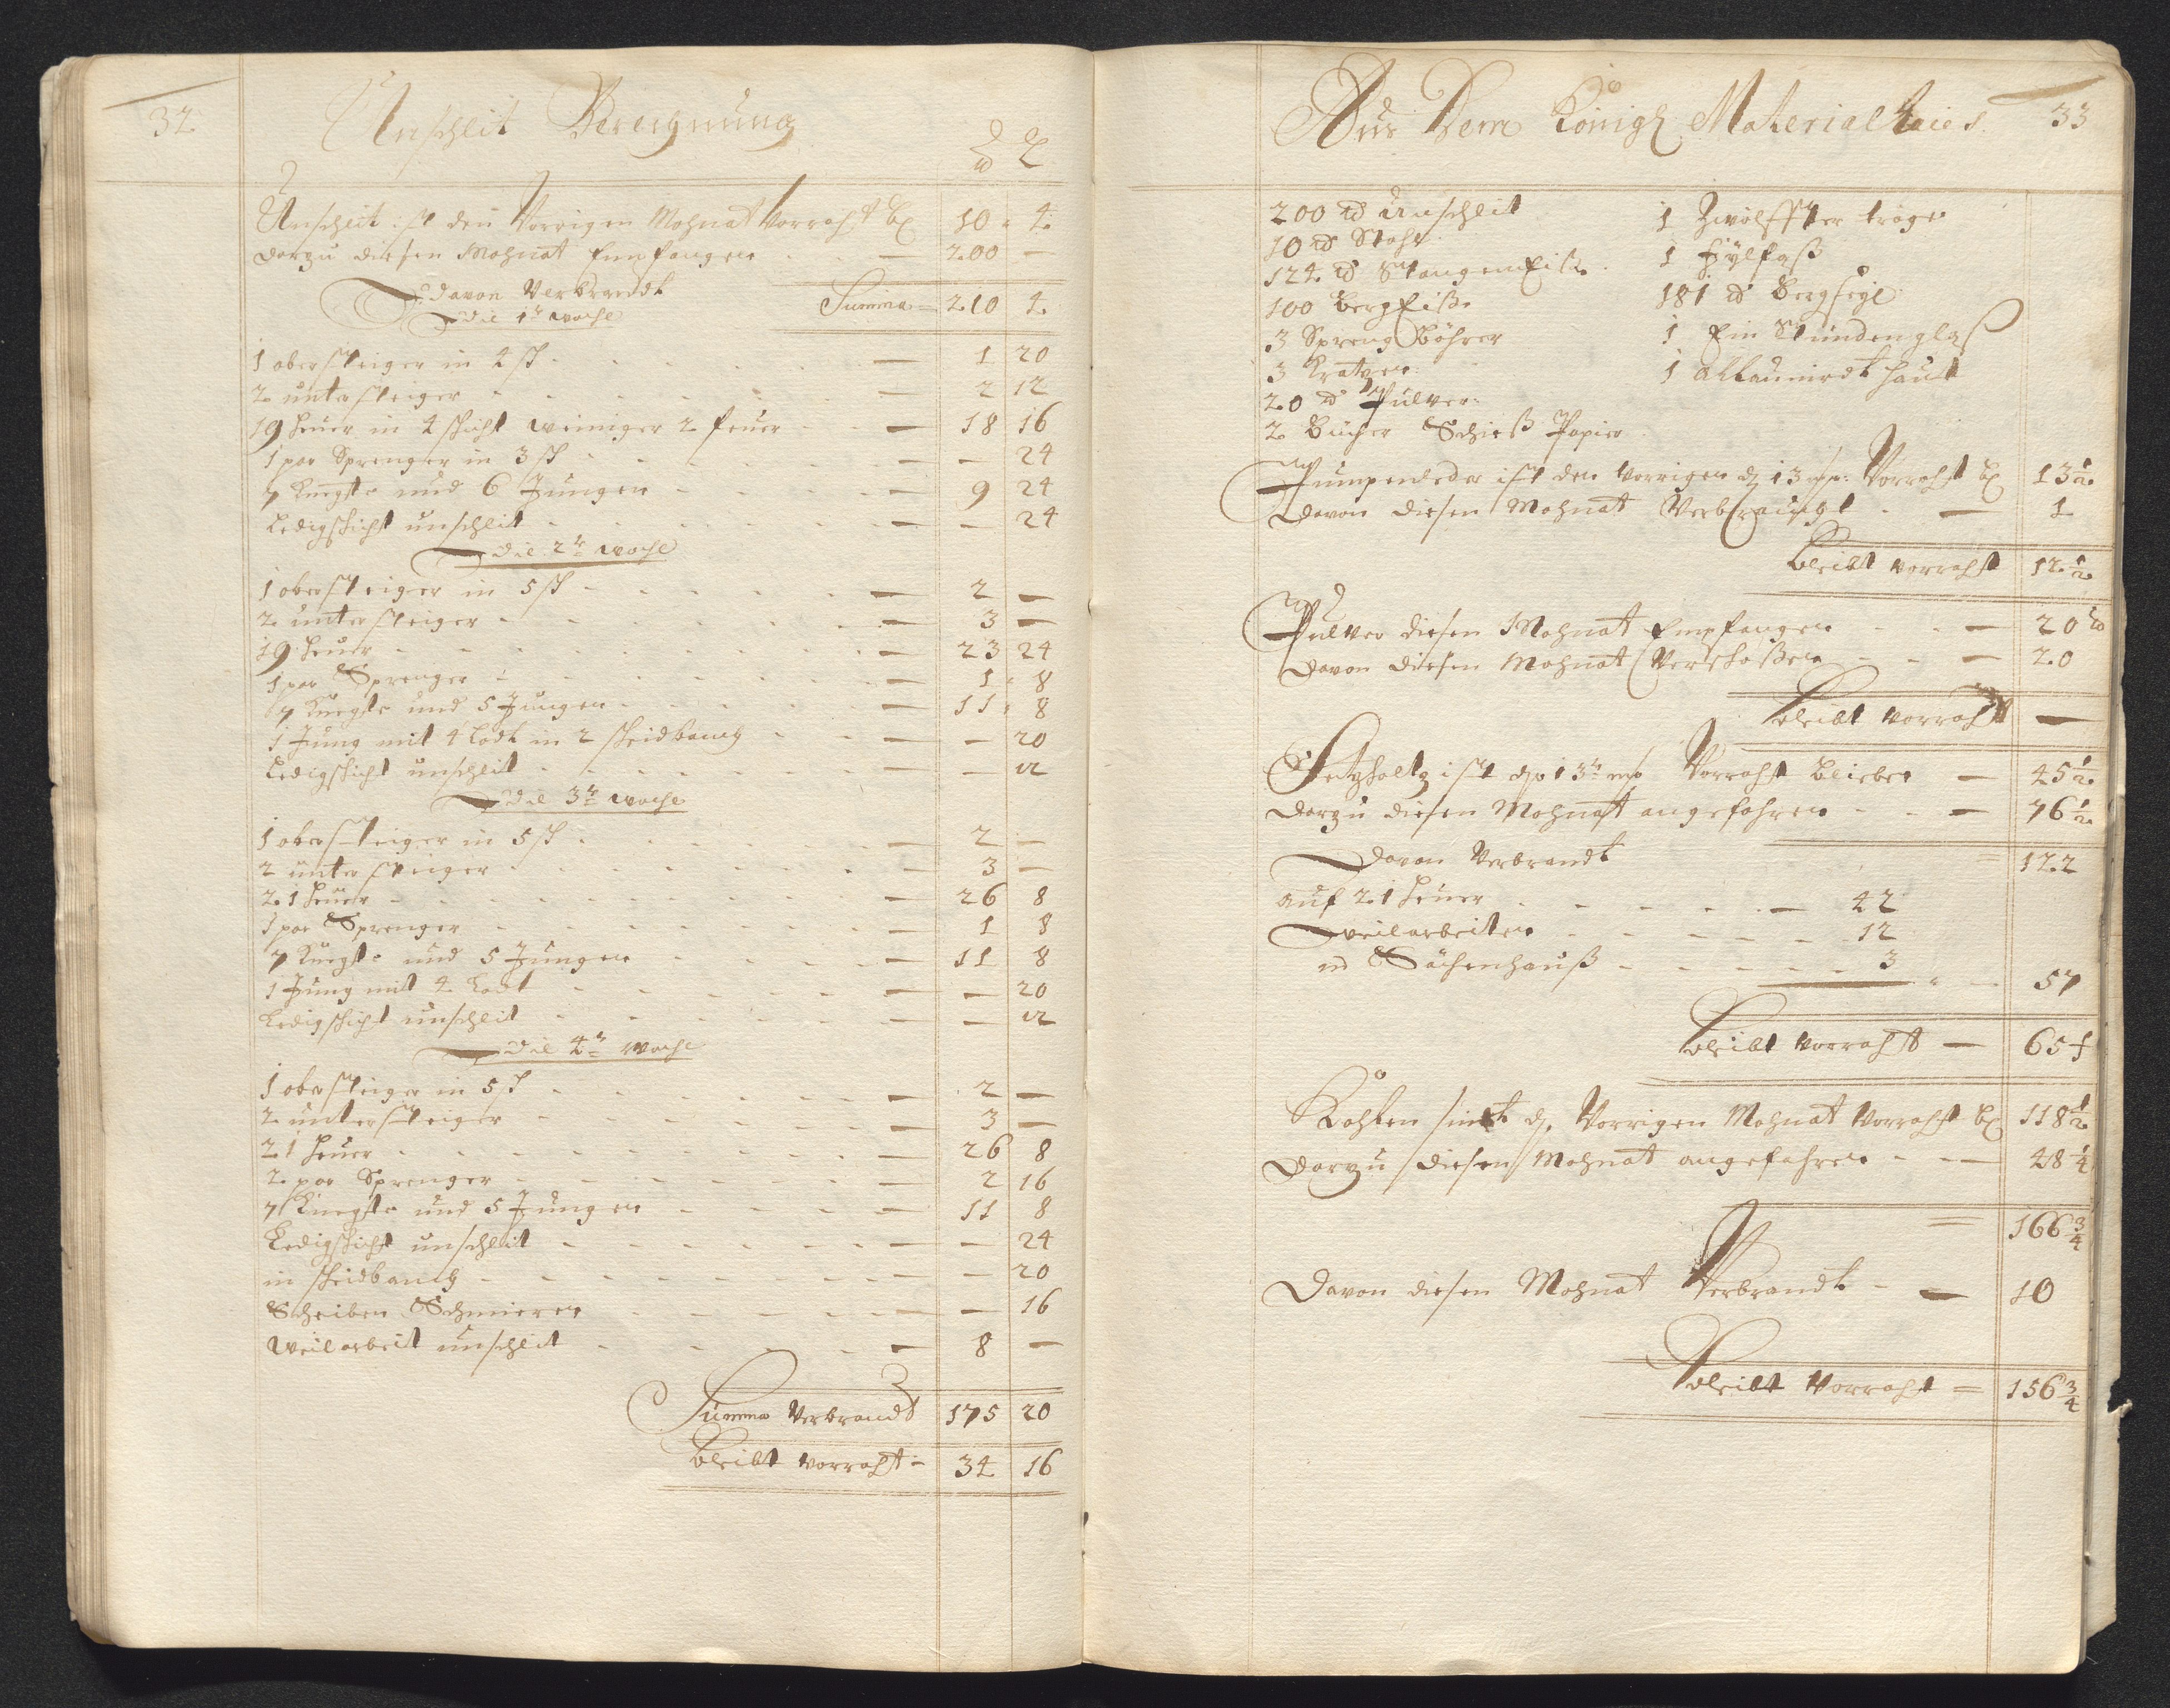 32
Unschlit Berechnung
℔ L
Unschlit ist den Vorrigen Mohnat Vorraht bl 10 4
darzu diesen Mohnat Empfangen 200 —
Summa = 210 4
davon Verbrandt
die 1te woche
1 obersteiger in 4 sch 1 20
2 untersteiger 2 12
19 heuer in 4 schicht weiniger 2 heuer 18 16
1 par Sprenger in 3 sch — 24
7 Knegte und 6 Jungen 9 24
Ledigschicht unschlit — 24
die 2te woche
1 obersteiger in 5 sch 2 —
2 untersteiger 3 —
19 heuer 23 24
1 par Sprenger 1 8
7 Knegte und 5 Jungen 11 8
1 Jung mit 4 lodt in 2 scheidbanch — 20
Ledigschicht unschlit — 12
die 3te woche
1 obersteiger in 5 sch 2 —
2 untersteiger 3 —
21 heuer 26 8
1 par Sprenger 1 8
7 Knegte und 5 Jungen 11 8
1 Jung mit 4 Lodt — 20
Ledigschicht unschlit — 12
die 4te woche
1 obersteiger in 5 sch 2 —
2 untersteiger 3 —
21 heuer 26 8
2 par Sprenger 2 16
7 Knegte und 5 Jungen 11 8
Ledigschicht unschlit — 24
in scheidbanch — 20
Scheiben Schmieren — 16
Weilarbeit unschlit 8 —
Summa Verbrandt 175 20
bleibt vorraht = 34 16
Aus Dem Königl Material 33
200 ℔ Unschlit
10 ℔ Stahl
124 ℔ Stangen Eisen
100 bergEissen
3 Spreng Böhrer
3 Kratzen
20 ℔ Pulver
2 Bücher Schieß Papier
1 Zwölffter tröge
1 Fylfaß
181 ℔ bergseyl
1 Ein Stundenglaß
1 allaunirdt haut
Pumpenleder ist den Vorrigen d 13 Vorraht bl 13½
davon diesen Mohnat Verbraucht 1
bleibt vorraht 12½
Pulver diesen Mohnat Empfangen 20 ℔
davon diesen Mohnat Verschoßen 20
bleibt vorraht —
Setzholtz ist 13te mo Vorraht blieben 45½
darzu diesen Mohnat angefahren 76½
davon Verbrandt = 122
auf 21 heuer 42
Weilarbeiten 12
Sächenhauß 3
57
bleibt vorraht 65
Kohlen sindt d. Vorrigen Mohnat Vorraht bl 118½
darzu diesen Mohnat angefahren 48¼
= 166¾
Davon diesen Mohnat Verbrandt 10
bleibt Vorraht = 156¾